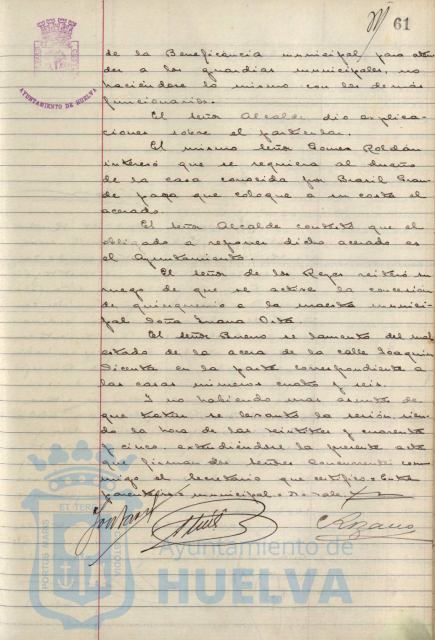 61
AYUNTAMIENTO DE HUELVA
de la Beneficencia municipal para aten
der a los guardias municipales, no
haciéndose lo mismo con los demás
funcionarios.
El señor Alcalde dió explica-
ciones sobre el particular.
El mismo señor Gomez Roldán
interesó que se requiera al dueño
de la casa conocida por Brasil Gran-
de para que coloque a su costa el
acerado.
El señor Alcalde contestó que el
obligado a reponer dicho acerado es
el Ayuntamiento.
El señor de los Reyes reiteró su
ruego de que se active la concesión
de quinquenio a la maestra munici-
pal doña Juana
El señor Bueno se lamentó del mal
estado de la acera de la calle Joaquin
Dicenta en la parte correspondiente a
las casas números cuatro y seis.
Y no habiendo mas asuntos de
que tratar se levantó la sesión, sien-
do la hora de las veintitres y cuarenta
y cinco, extendiéndose la presente acta
que firman los señores concurrentes con-
migo el Secretario que certifico = Entre
paréntesis = municipal = no vale.
Ayuntamiento de
HUELVA